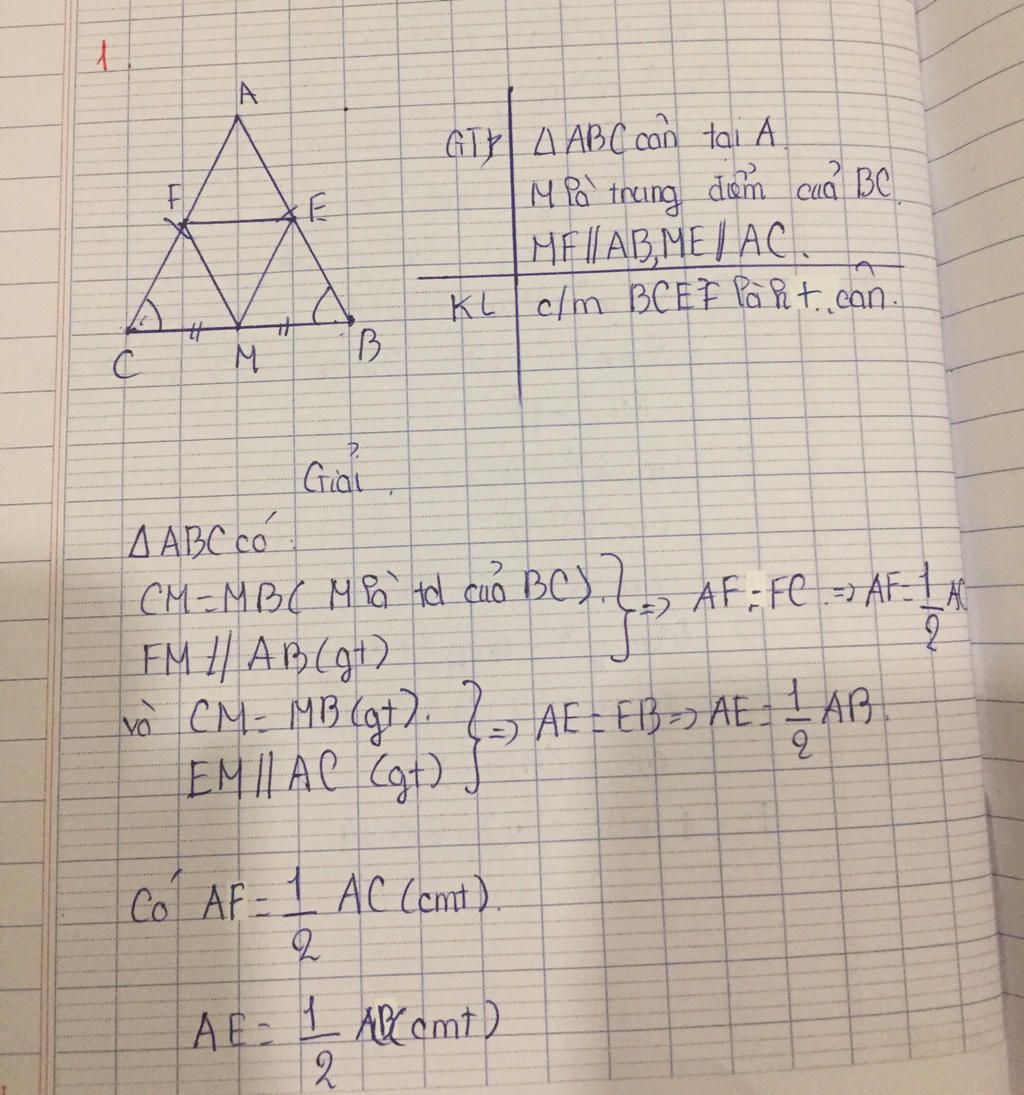 1.
A
F E
C M B
GT ΔABC cân tại A
M là trung điểm của BC.
MF // AB, ME // AC.
KL c/m BCEF là h.t. cân.
Giải.
ΔABC có:
CM = MB ( M là tđ của BC). } => AF = FC. => AF = 1/2 AC
FM // AB (gt)
và CM = MB (gt). } => AE = EB => AE = 1/2 AB.
EM // AC (gt)
Có AF = 1/2 AC (cmt).
AE = 1/2 AB (cmt)